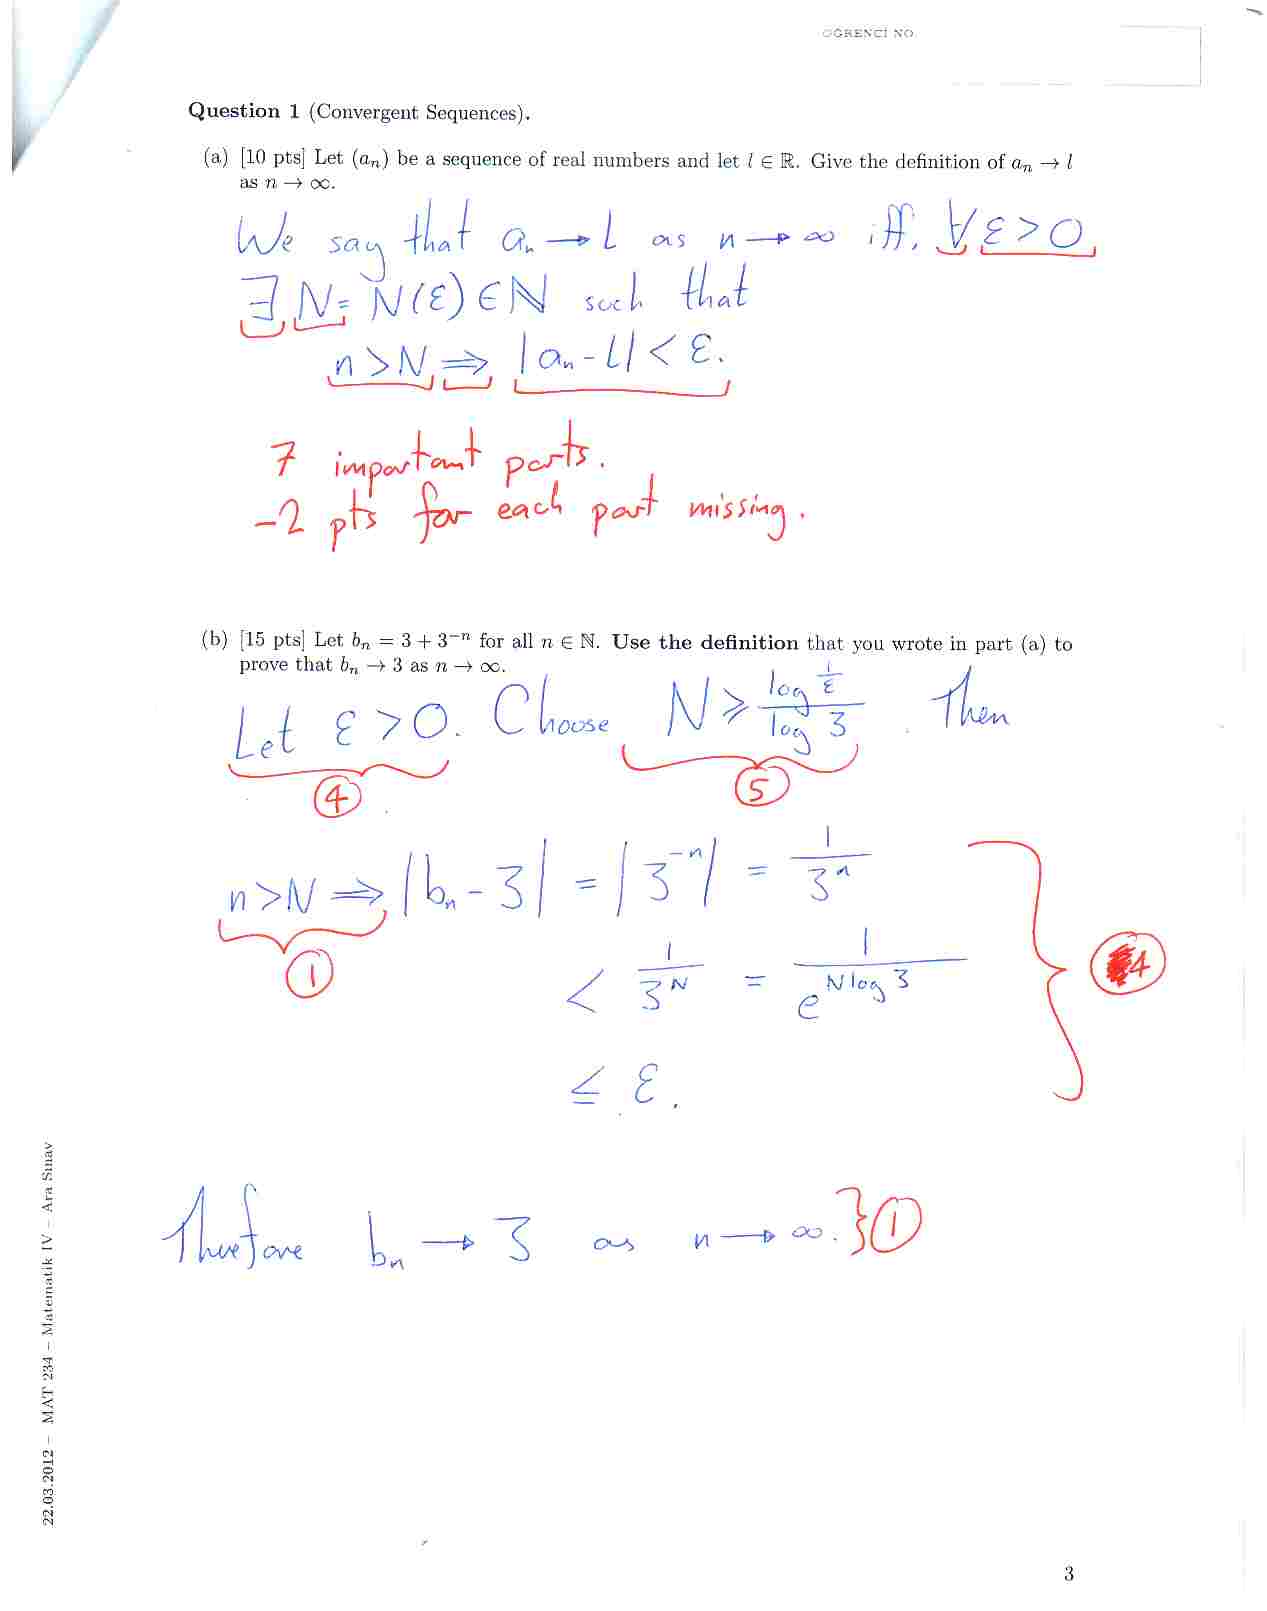 ÖĞRENCİ NO.
Question 1 (Convergent Sequences).
(a) [10 pts] Let (aₙ) be a sequence of real numbers and let l ∈ ℝ. Give the definition of aₙ → l
as n → ∞.
We say that aₙ → l as n → ∞ iff, ∀ ε > 0
∃ N = N(ε) ∈ ℕ such that
n > N ⇒ |aₙ - l| < ε.
7 important parts.
-2 pts for each part missing.
(b) [15 pts] Let bₙ = 3 + 3⁻ⁿ for all n ∈ ℕ. Use the definition that you wrote in part (a) to
prove that bₙ → 3 as n → ∞.
Let ε > 0. Choose N ≥ (log 1/ε)/(log 3). Then
4 5
n > N ⇒ |bₙ - 3| = |3⁻ⁿ| = 1/3ⁿ
1
< 1/3ᴺ = 1/e^(N log 3) 4
≤ ε.
Therefore bₙ → 3 as n → ∞. } 1
22.03.2012 – MAT 234 – Matematik IV – Ara Sınav
3